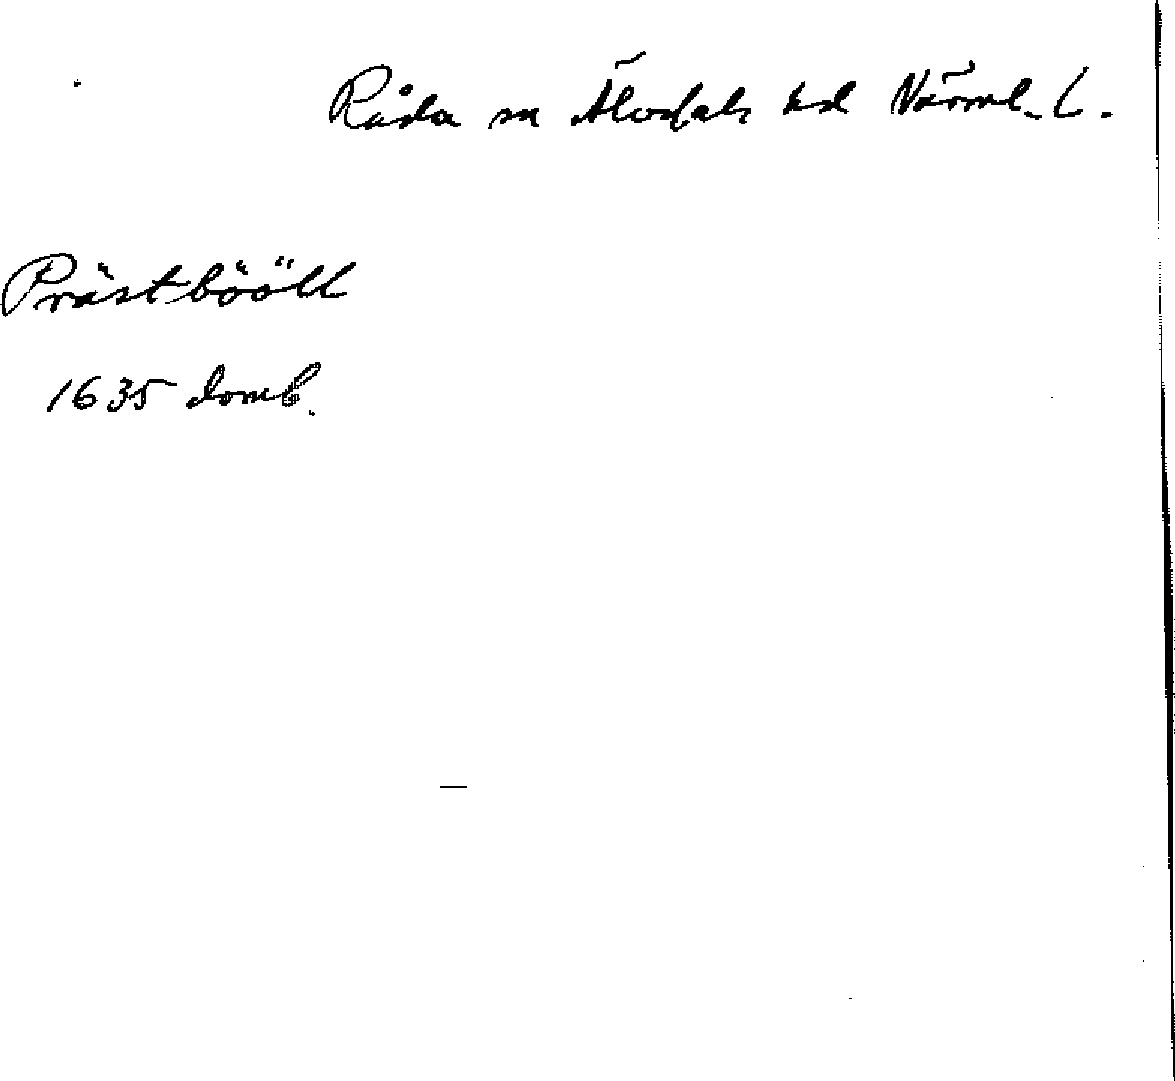 Råda sn Älvdals hd Värml. l.
Prästbööll
1635 domb.